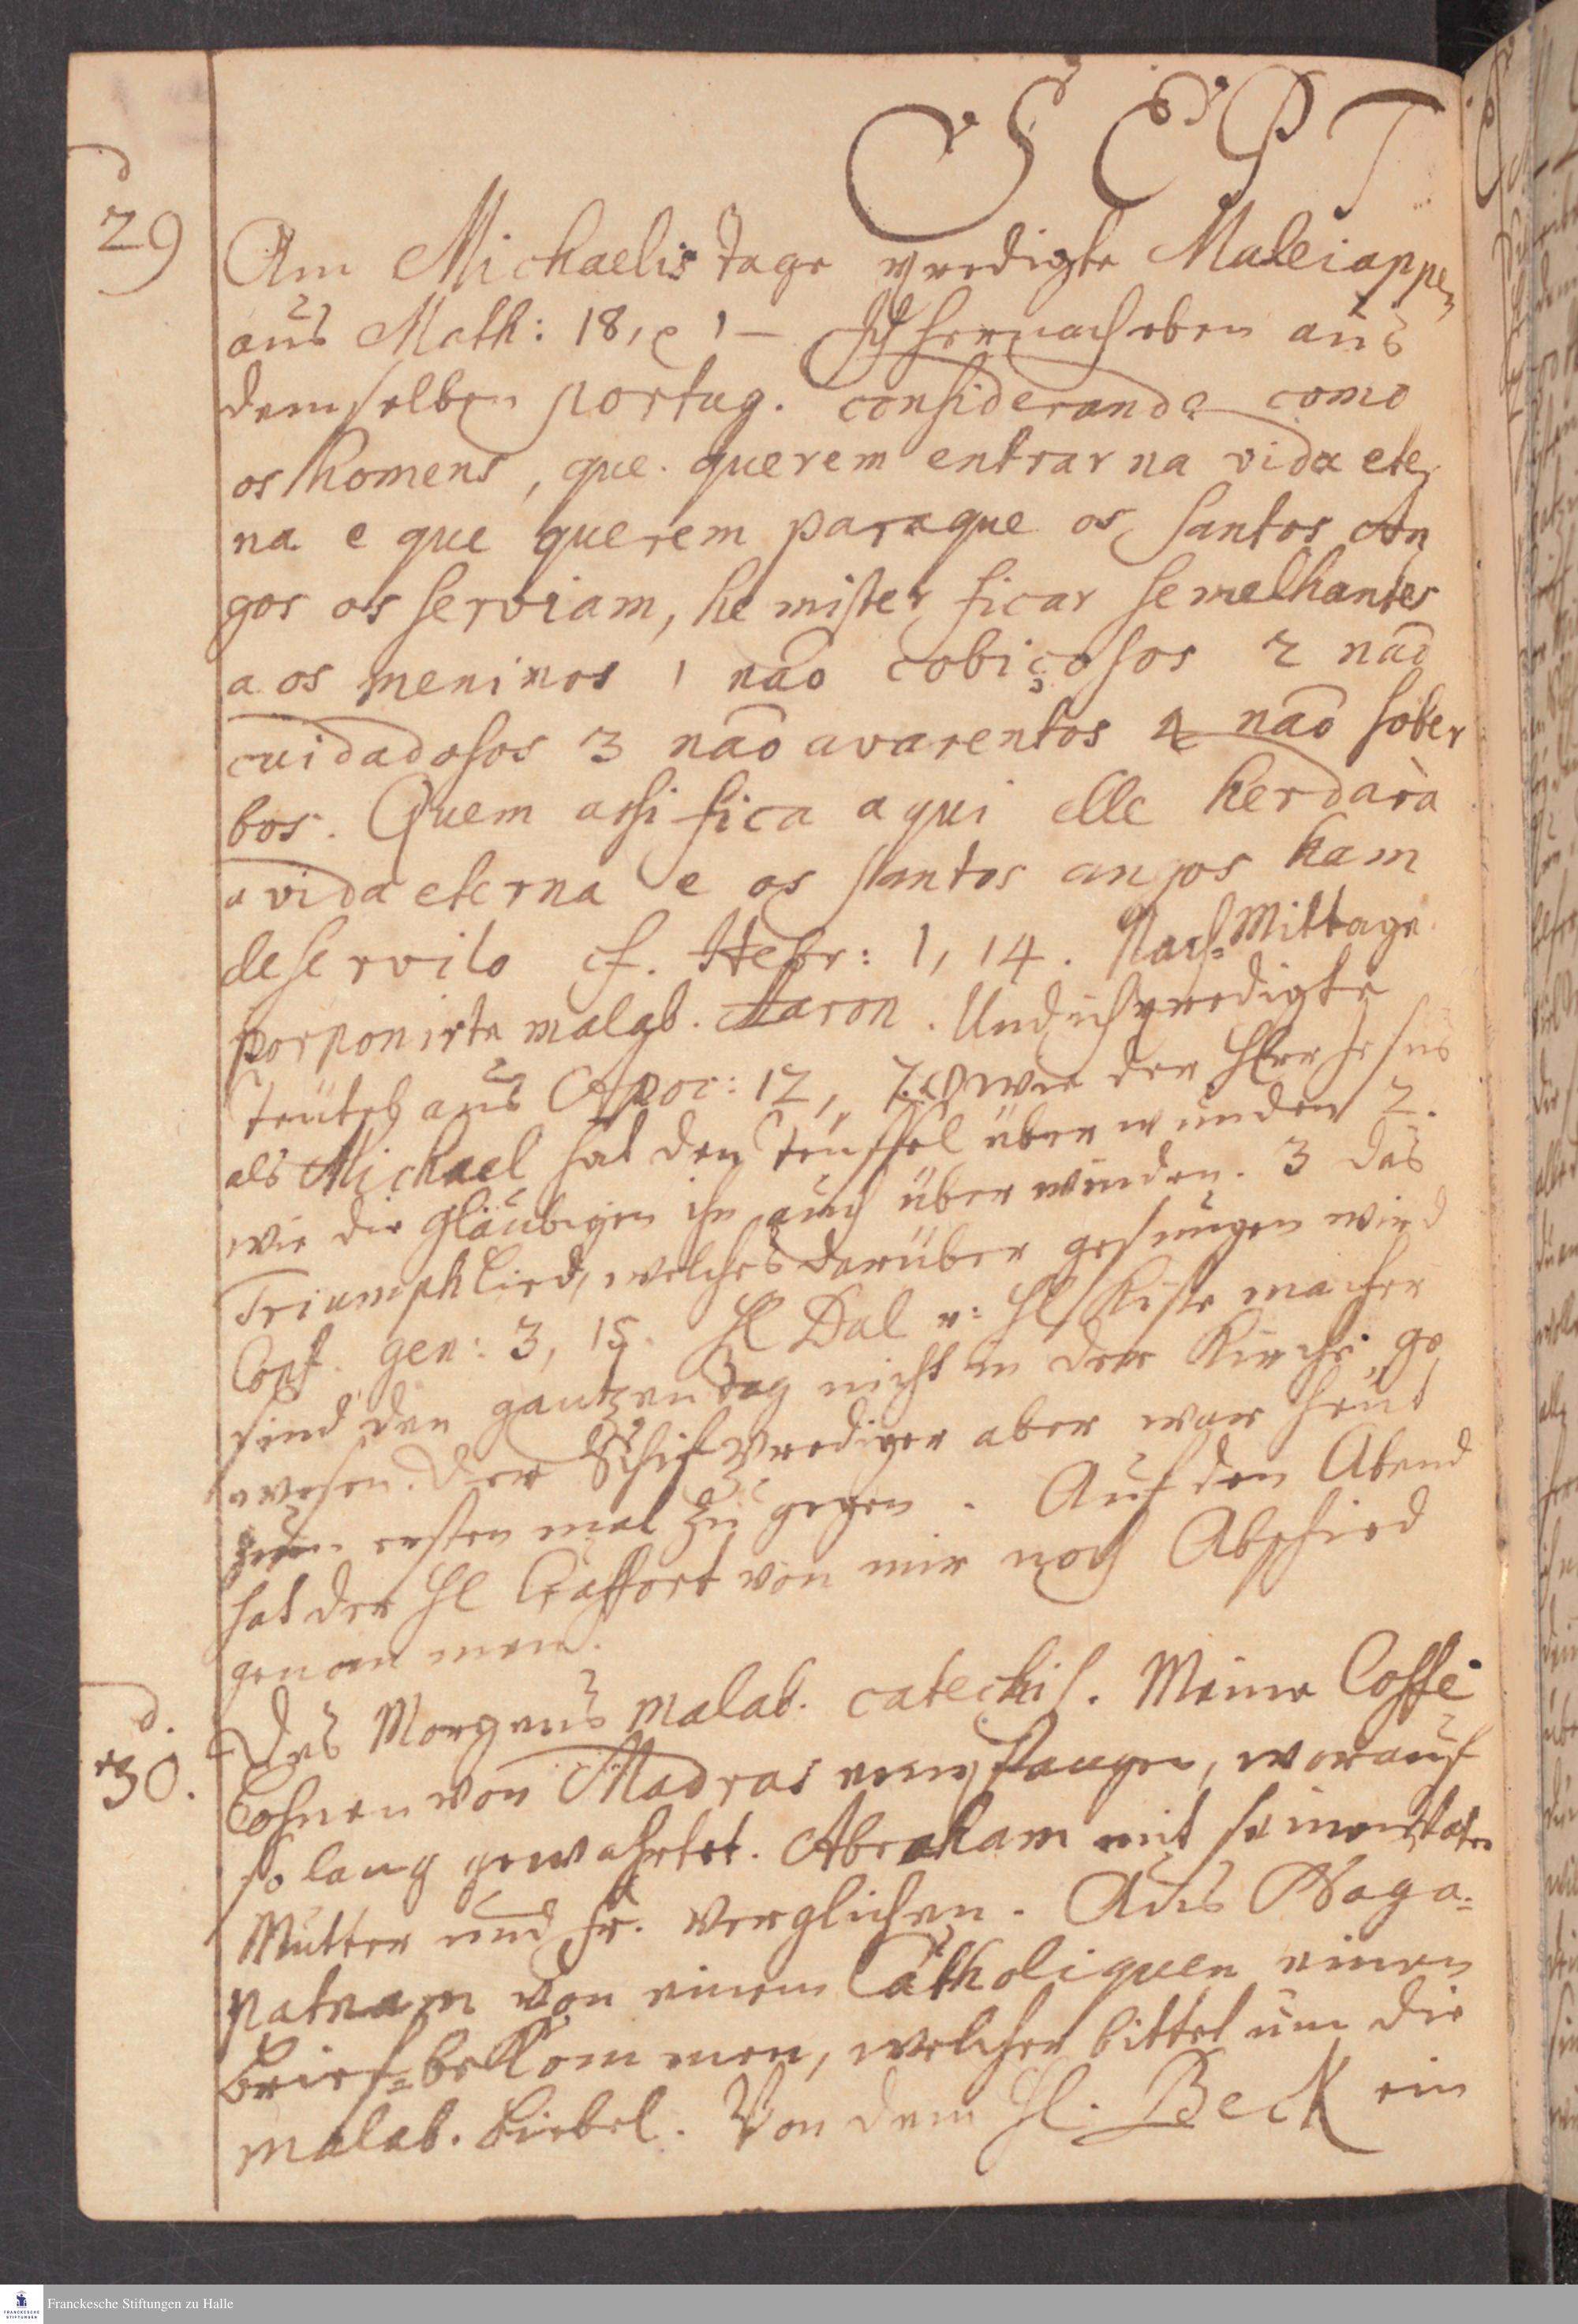 SEPT
d
29
Am Michaelis Tage predigte Maleiappen
aus Math: 18, 1 – Ich hernach eben aus
demselben portug. considerando como
os homens, que querem entrar na vida eter
na e que querem paraque os Santos An
gos os serviam, he mister ficar semelhantes
a os meninos 1 não cobiçosos 2 não
cuidadosos 3 não avarentos 4 não sober
bos. Quem assi fica aqui elle herdarà
a vida eterna e os santos anjos ham
de servilo cf. Hebr: 1, 14. Nach-Mittage
porponirte malab. Aaron. Und ich predigte
Teütsch aus Apoc: 12, 7. wie der Herr Jesus
als Michael hat den Teuffel überwunden 2.
wie die Gläubigen ihn auch überwinden. 3 das
Triumphlied, welches darüber gesungen wird
Conf. gen: 3, 15. H Dal u: H Kiste macher
sind den gantzen Tag nicht in der Kirche ge
wesen. Der Schif Prediger aber war heut
zum ersten mal zu gegen. Auf den Abend
hat der H Craffort von mir noch Abschied
genommen.
d.
30.
Des Morgens malab. catechis. Meine Coffé
Bohnen von Madras empfangen, worauf
so lang gewahrtet. Abraham mit seiner
Mutter und fr. verglichen. Aus Naga-
patnam von einem Catholiquen einen
Brief bekommen, welcher bittet um die
malab. Biebel. Von dem H. Beck ein
Franckesche Stiftungen zu Halle